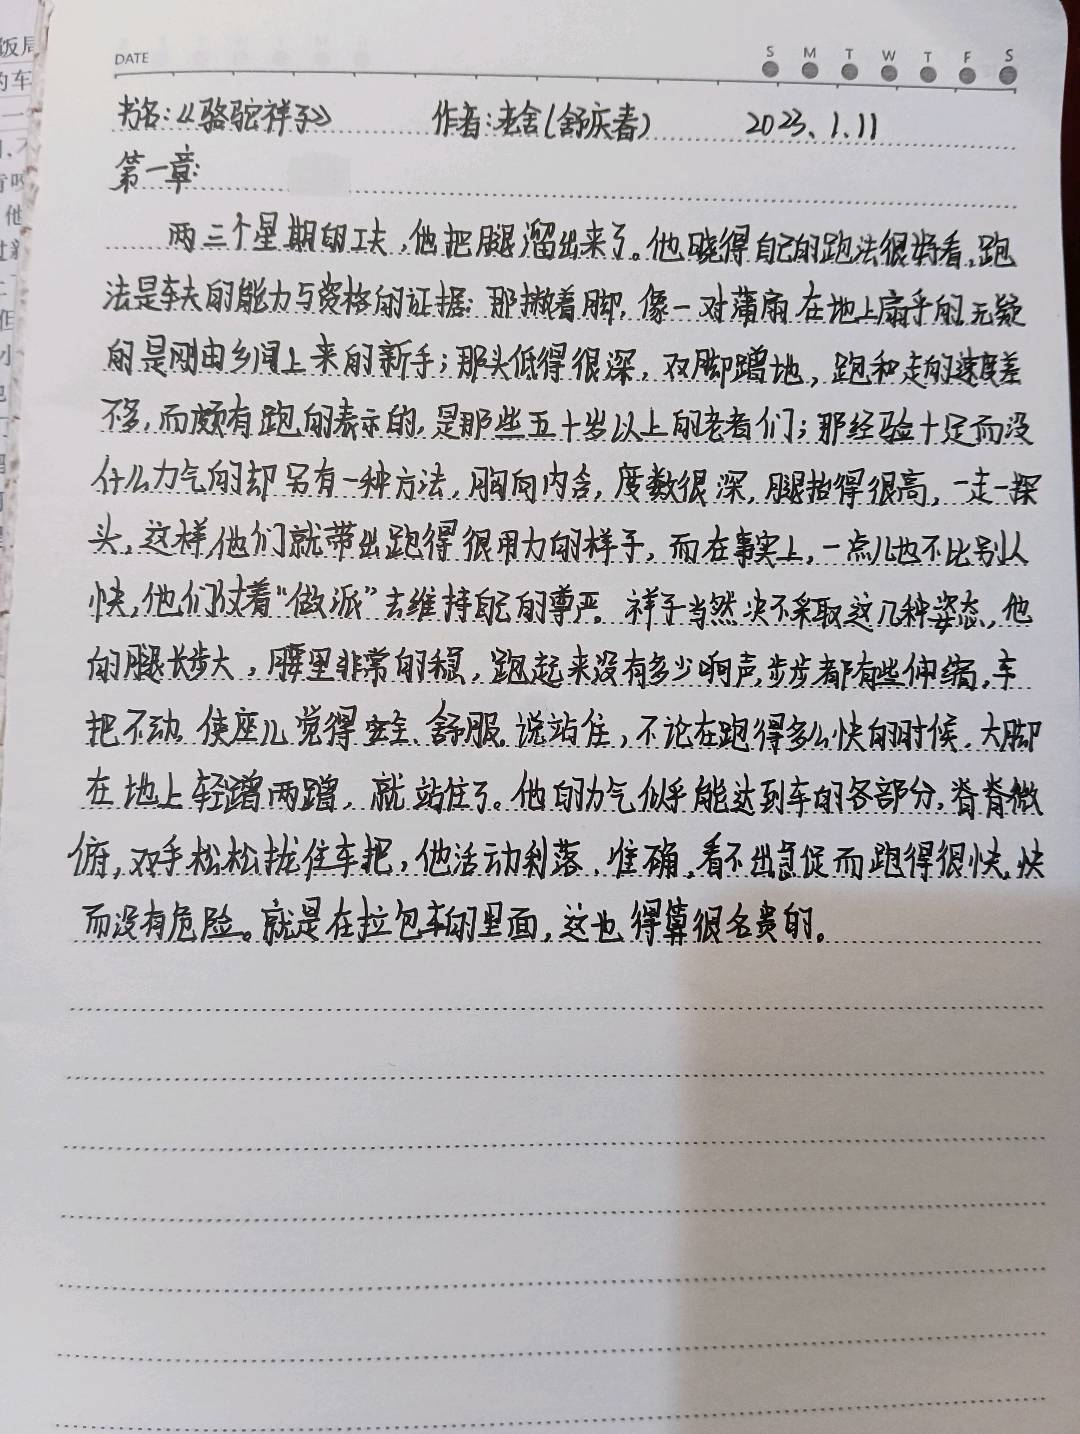 DATE S M T W T F S
书名:《骆驼祥子》 作者:老舍(舒庆春) 2023.1.11
第一章:
两三个星期的工夫,他把腿溜出来了。他晓得自己的跑法很好看,跑
法是车夫的能力与资格的证据:那撇着脚,像一对蒲扇在地上扇乎的,无疑
的是刚由乡间上来的新手;那头低得很深,双脚蹭地,跑和走的速度差
不多,而颇有跑的表示的,是那些五十岁以上的老者们;那经验十足而没
什么力气的却另有一种方法,胸向内含,度数很深,腿抬得很高,一走一探
头,这样,他们就带出跑得很用力的样子,而在事实上,一点儿也不比别人
快,他们仗着“做派”去维持自己的尊严。祥子当然决不采取这几种姿态,他
的腿长步大,腰里非常的稳,跑起来没有多少响声,步步都有些伸缩,车
把不动,使座儿觉得安全、舒服。说站住,不论在跑得多么快的时候,大脚
在地上轻蹭两蹭,就站住了。他的力气似乎能达到车的各部分,脊脊微
俯,双手松松拢住车把,他活动利落,准确,看不出急促而跑得很快,快
而没有危险。就是在拉包车的里面,这也得算很名贵的。
饭局
的车
二
但
小